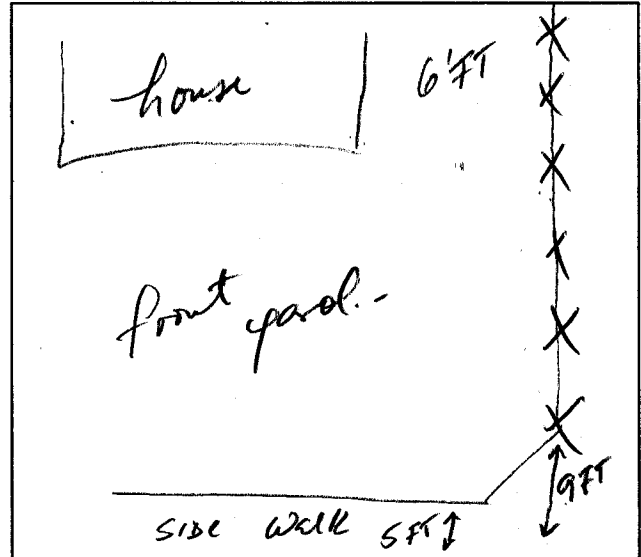 house
6'FT
front yard.-
9FT
SIDE WALK 5FT